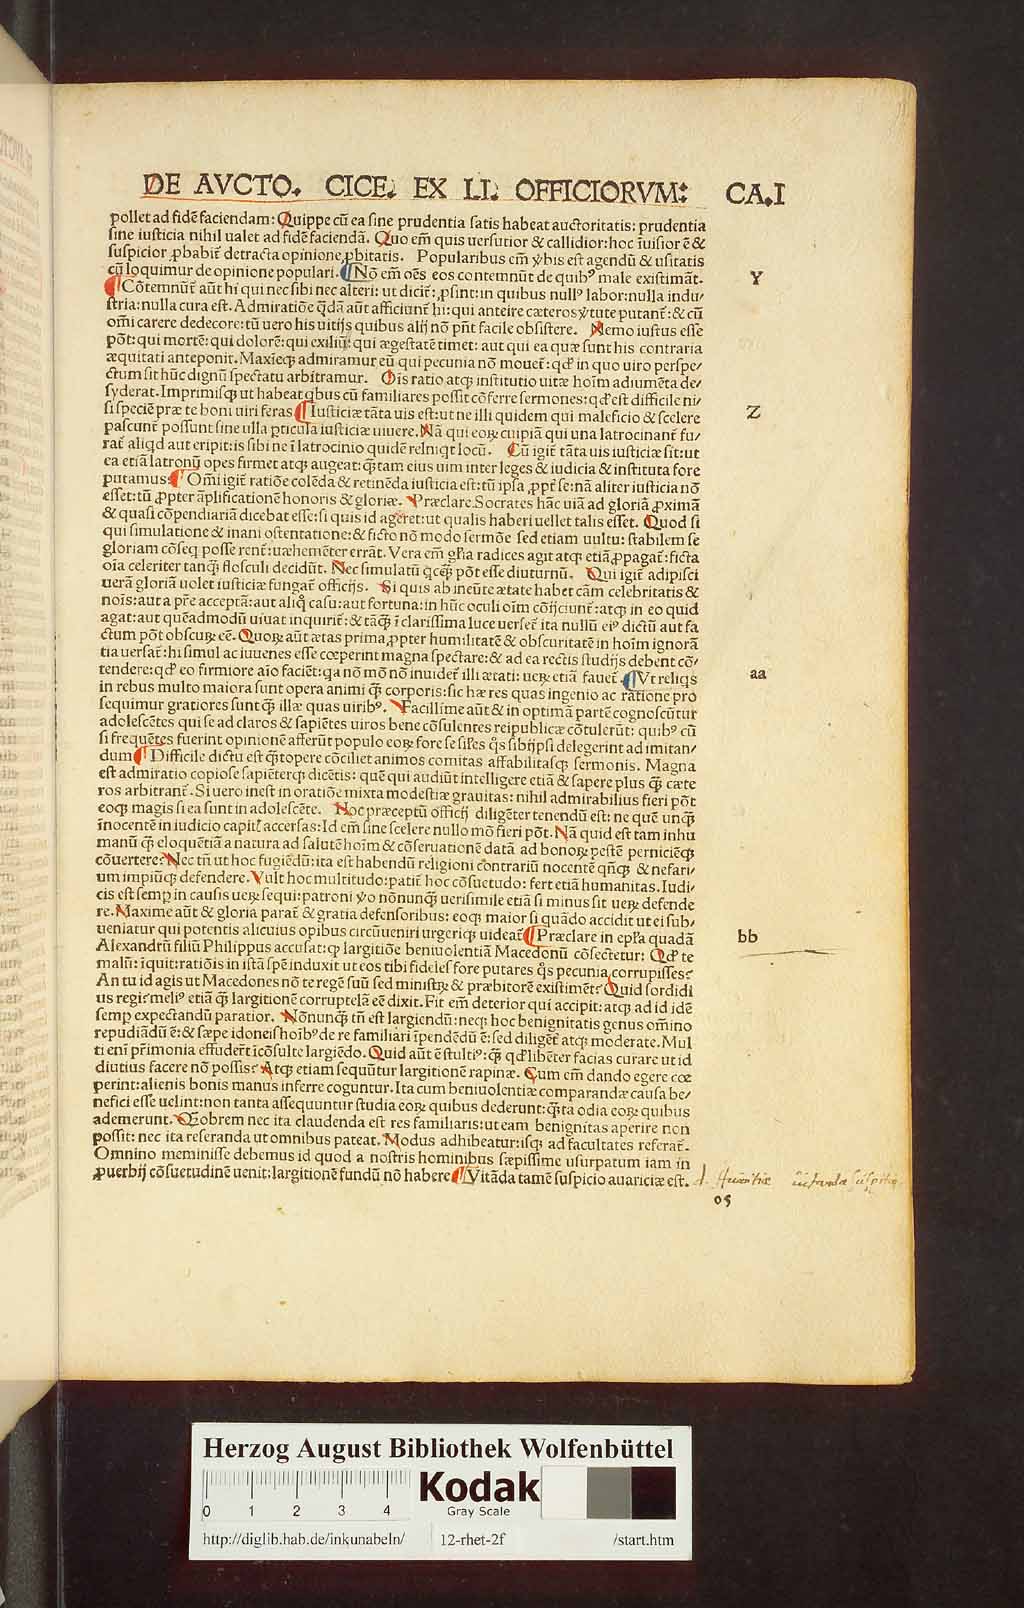 DE AVCTO. CICE. EX LI. OFFICIORVM: CA.I
pollet ad fidē faciendam: Quippe cū ea sine prudentia satis habeat auctoritatis: prudentia
sine iusticia nihil ualet ad fidē faciendā. Quo em̄ quis uersutior & callidior: hoc īuisior ē &
suspicior ꝓbabit᷑ detracta opinione ꝓbitatis. Popularibus em̄ v̓bis est agendū & usitatis
cū loquimur de opinione populari. ¶ Nō em̄ oēs eos contemnūt de quibꝰ male existimāt.
Y
¶ Cōtemnūt᷑ aūt hi qui nec sibi nec alteri: ut dicit᷑: ꝓsint: in quibus nullꝰ labor: nulla indu/
stria: nulla cura est. Admiratiōe q̄dā aūt afficiunt᷑ hi: qui anteire cæteros v̓tute putant᷑: & cū
om̄i carere dedecore: tū uero his uitijs quibus alij nō pn̄t facile obsistere. Nemo iustus esse
pōt: qui mortē: qui dolorē: qui exiliū: qui ægestatē timet: aut qui ea quæ sunt his contraria
æquitati anteponit. Maxieqꝫ admiramur eū qui pecunia nō mouet᷑: qđ in quo uiro perspe/
ctum sit hūc dignū spectatu arbitramur. Oīs ratio atqꝫ institutio uitæ hoīm adiumēta de/
syderat. Imprimisqꝫ ut habeat qbus cū familiares possit cōferre sermones: qđ est difficile ni/
si speciē præ te boni uiri feras ¶ Iusticiæ tāta uis est: ut ne illi quidem qui maleficio & scelere
Z
pascunt᷑ possunt sine ulla ꝑticula iusticiæ uiuere. Nā qui eoꝝ cuipiā qui una latrocinant᷑ fu/
rat᷑ aliqd aut eripit: is sibi ne ī latrocinio quidē relniqt locū. Cū igit᷑ tāta uis iusticiæ sit: ut
ea etiā latronū opes firmet atqꝫ augeat: q̄tam eius uim inter leges & iudicia & instituta fore
putamus: ¶ Om̄i igit᷑ ratiōe colēda & retinēda iusticia est: tū ipsa ꝓpt᷑ se: nā aliter iusticia nō
esset: tū ꝓpter āplificationē honoris & gloriæ. Præclare Socrates hāc uiā ad gloriā ꝓximā
& quasi cōpendiariā dicebat esse: si quis id ageret: ut qualis haberi uellet talis esset. Quod si
qui simulatione & inani ostentatione: & ficto nō modo sermōe sed etiam uultu: stabilem se
gloriam cōseq posse rent᷑: uæhemēter errāt. Vera em̄ gl̄ia radices agit atqꝫ etiā ꝓpagat᷑: ficta
oīa celeriter tanq̄ flosculi decidūt. Nec simulatū qcq̄ pōt esse diuturnū. Qui igit᷑ adipisci
uerā gloriā uolet iusticiæ fungat᷑ officijs. Si quis ab ineūte ætate habet cām celebritatis &
noīs: aut a pr̄e acceptā: aut aliq̊ casu: aut fortuna: in hūc oculi oīm cōijciunt᷑: atqꝫ in eo quid
agat: aut quēadmodū uiuat inquirit᷑: & tāq̄ ī clarissima luce uerset᷑ ita nullū eiꝰ dictū aut fa
ctum pōt obscuꝝ eē. Quoꝝ aūt ætas prima ꝓpter humilitatē & obscuritatē in hoīm ignorā
tia uersat᷑: hi simul ac iuuenes esse cœperint magna spectare: & ad ea rectis studijs debent cō/
tendere: qđ eo firmiore aīo faciēt: qa nō mō nō inuidet᷑ illi ætati: ueꝝ etiā fauet᷑. ¶ Vt reliqs
aa
in rebus multo maiora sunt opera animi q̄ corporis: sic hæ res quas ingenio ac ratione pro
sequimur gratiores sunt q̄ illæ quas uiribꝰ. Facillime aūt & in optimā partē cognoscūtur
adolescētes qui se ad claros & sapiētes uiros bene cōsulentes reipublicæ cōtulerūt: quibꝰ cū
si frequētes fuerint opinionē afferūt populo eoꝝ fore se sil̄es q̊s sibijpsi delegerint ad imitan/
dum ¶ Difficile dictu est q̄topere cōciliet animos comitas affabilitasqꝫ sermonis. Magna
est admiratio copiose sapiēterqꝫ dicētis: quē qui audiūt intelligere etiā & sapere plus q̄ cæte
ros arbitrant᷑. Si uero inest in oratiōe mixta modestiæ grauitas: nihil admirabilius fieri pōt
eoqꝫ magis si ea sunt in adolescēte. Hoc præceptū officij diligēter tenendū est: ne quē unq̄
īnocentē in iudicio capit᷑ accersas: Id em̄ sine scelere nullo mō fieri pōt. Nā quid est tam inhu
manū q̄ eloquētiā a natura ad salutē hoīm & cōseruationē datā ad bonoꝝ pestē perniciēqꝫ
cōuertere: Nec tn̄ ut hoc fugiēdū: ita est habendū religioni contrariū nocentē qn̄qꝫ & nefari/
um impiūqꝫ defendere. Vult hoc multitudo: patit᷑ hoc cōsuetudo: fert etiā humanitas. Iudi/
cis est semꝑ in causis ueꝝ sequi: patroni v̓o nōnunq̄ uerisimile etiā si minus sit ueꝝ defende
re. Maxime aūt & gloria parat᷑ & gratia defensoribus: eoqꝫ maior si quādo accidit ut ei sub/
ueniatur qui potentis alicuius opibus circūueniri urgeriqꝫ uideat᷑ ¶ Præclare in ep̄la quadā
bb
Alexandrū filiū Philippus accusat: qꝫ largitiōe beniuolentiā Macedonū cōsectetur: Qđ te
malū: īquit: ratiōis in istā spē induxit ut eos tibi fideles fore putares q̊s pecunia corrupisses?
An tu id agis ut Macedones nō te regē suū sed ministꝝ & præbitorē existimēt? Quid sordidi
us regi? meliꝰ etiā q̄ largitionē corruptelā eē dixit. Fit em̄ deterior qui accipit: atqꝫ ad id idē
semꝑ expectandū paratior. Nōnunq̄ tn̄ est largiendū: neqꝫ hoc benignitatis genus om̄ino
repudiādū ē: & sæpe idoneis hoībꝰ de re familiari īpendēdū ē: sed diligēt᷑ atqꝫ moderate. Mul
ti eni pr̄imonia effuderūt īcōsulte largiēdo. Quid aūt ē stultiꝰ: q̄ qđ libēter facias curare ut id
diutius facere nō possis? Atqꝫ etiam sequūtur largitionē rapinæ. Cum em̄ dando egere cœ
perint: alienis bonis manus inferre coguntur. Ita cum beniuolentiæ comparandæ causa be/
nefici esse uelint: non tanta assequuntur studia eoꝝ quibus dederunt: q̄ta odia eoꝝ quibus
ademerunt. Q̄obrem nec ita claudenda est res familiaris: ut eam benignitas aperire non
possit: nec ita reseranda ut omnibus pateat. Modus adhibeatur: isqꝫ ad facultates referat᷑.
Omnino meminisse debemus id quod a nostris hominibus sæpissime usurpatum iam in
ꝓuerbij cōsuetudinē uenit: largitionē fundū nō habere ¶ Vitāda tamē suspicio auariciæ est.
05
Herzog August Bibliothek Wolfenbüttel
0 1 2 3 4
Kodak
Gray Scale
http://diglib.hab.de/inkunabeln/ 12-rhet-2f /start.htm